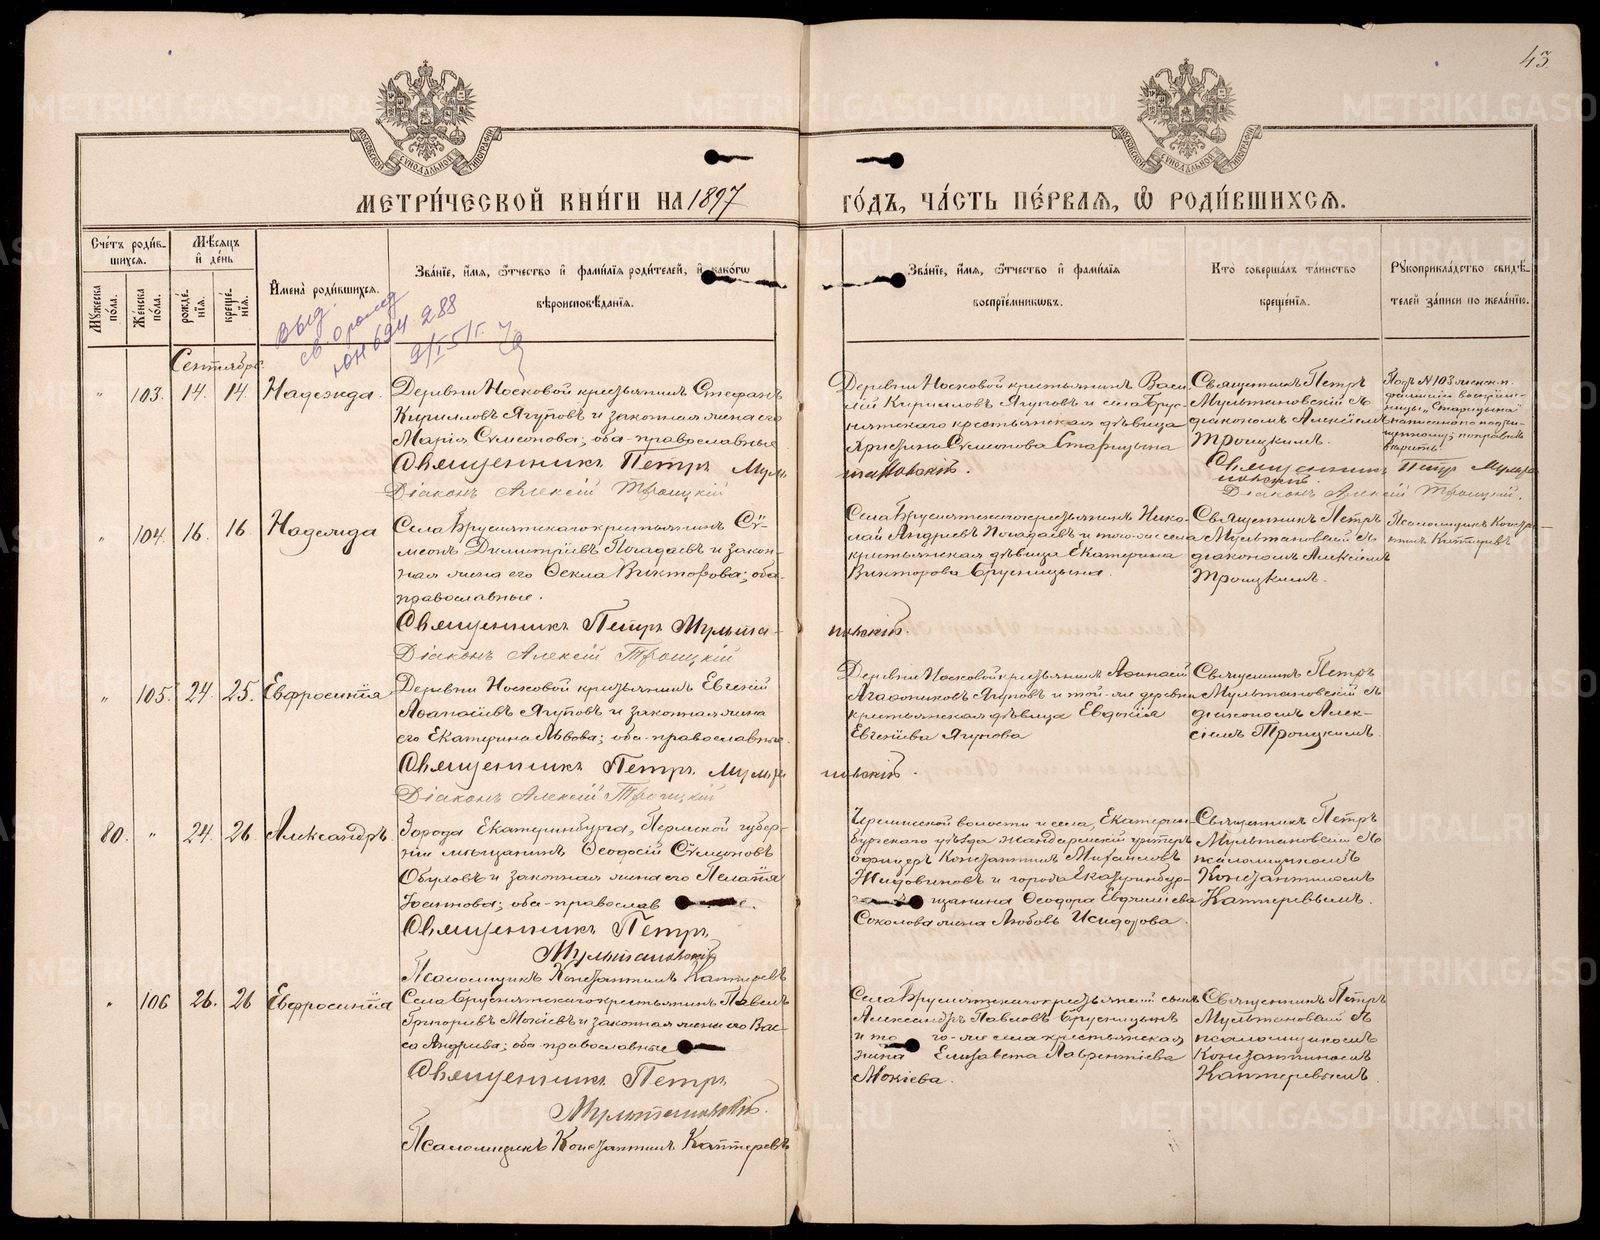 43
МЕТРИ́ЧЕСКОЙ КНИ́ГИ НА 1897
ГО́ДЪ, ЧА́СТЬ ПЕ́РВАЯ, Ѡ РОДИ́ВШИХСЯ.
Сче́тъ роди́в-
шихся.
Мѣ́сяцъ
и҆ де́нь
Мꙋжеска по́ла.
Же́нска по́ла.
рожде́-нїя.
креще́-нїя.
И҆мена̀ роди́вшихся.
Зва́нїе, и҆́мя, ѻ҆́тчество и҆ фами́лїя роди́телей, и҆ како́гѡ
вѣроисповѣ́данїя.
Зва́нїе, и҆́мя, ѻ҆́тчество и҆ фами́лїя
воспрїе́мникѡвъ.
Кто̀ соверша́лъ та́инство
креще́нїя.
Рꙋкоприкла́дство свидѣ́-
телей за́писи по жела́нїю.
Выд.
288
Сентябрь
" 103. 14. 14. Надежда.
Деревни Носковой крестьянинъ Стефанъ
Кирилловъ Ягуповъ и законная жена его
Марія Сѵмеонова; оба православные
Священникъ Петръ Мульта
Діаконъ Алексій Троицкій
Деревни Носковой крестьянинъ Васи-
лій Кирилловъ Ягуповъ и села Брус-
нятскаго крестьянская дѣвица
Христина Сѵмеонова Старицына
новскій.
Священникъ Петръ
Мультановскій съ
діакономъ Алексіемъ
Троицкимъ.
Подъ № 103 женск. п.
фамилія воспріем-
ницы „Старицына"
написанному по
вѣрить.
Священникъ Петръ Мульта
новскій.
Діаконъ Алексій Троицкій.
" 104. 16. 16. Надежда
Села Бруснятскаго крестьянинъ Сѵ-
меонъ Димитріевъ Погадаевъ и закон-
ная жена его Ѳекла Викторова; оба
православные.
Священникъ Петръ Мульта-
Діаконъ Алексій Троицкій
Села Бруснятскаго крестьянинъ Нико-
лай Андреевъ Погадаевъ и того же села
крестьянская дѣвица Екатерина
Викторова Брусницына.
новскій.
Священникъ Петръ
Мультановскій съ
діакономъ Алексіемъ
Троицкимъ.
Псаломщикъ Конста-
нтинъ Каптеревъ
" 105. 24. 25. Евфросинія
Деревни Носковой крестьянинъ Евгеній
Аѳанасіевъ Ягуповъ и законная жена
его Екатерина Львова; оба православные.
Священникъ Петръ Мульта
Діаконъ Алексій Троицкій
Деревни Носковой крестьянинъ Аѳанасій
Агаѳониковъ Ягуповъ и той-же деревни
крестьянская дѣвица Евдокія
Евгеніева Ягупова
новскій.
Священникъ Петръ
Мультановскій съ
діакономъ Алек-
сіемъ Троицкимъ.
80. " 24. 26. Александръ
Города Екатеринбурга, Пермской губер-
ніи мѣщанинъ Ѳеодосій Сѵмеоновъ
Обуховъ и законная жена его Пелагія
Іоаннова; оба православ
Священникъ Петръ
Мультановскій
Псаломщикъ Константинъ Каптеревъ
волости и села, Екатерин-
бургскаго уѣзда жандармскій унтеръ
офицеръ Константинъ Михайловъ
Жидовиновъ и города Екатеринбур-
щанина Ѳеодора Евфиміева
Соколова жена Любовь Исидорова.
Священникъ Петръ
Мультановскій съ
псаломщикомъ
Константиномъ
Каптеревымъ.
" 106 26. 26 Евфросинія
Села Бруснятскаго крестьянинъ Павелъ
Григорьевъ Мокіевъ и законная жена его Вас-
са Андреева; оба православные
Священникъ Петръ
Мультановскій.
Псаломщикъ Константинъ Каптеревъ
Села Бруснятскаго крестьянскій сынъ
Александръ Павловъ Брусницынъ
и то го-же села крестьянская
жена Елизавета Лаврентіева
Мокіева.
Священникъ Петръ
Мультановскій съ
псаломщикомъ
Константиномъ
Каптеревымъ.
METRIKI.GASO-URAL.RU